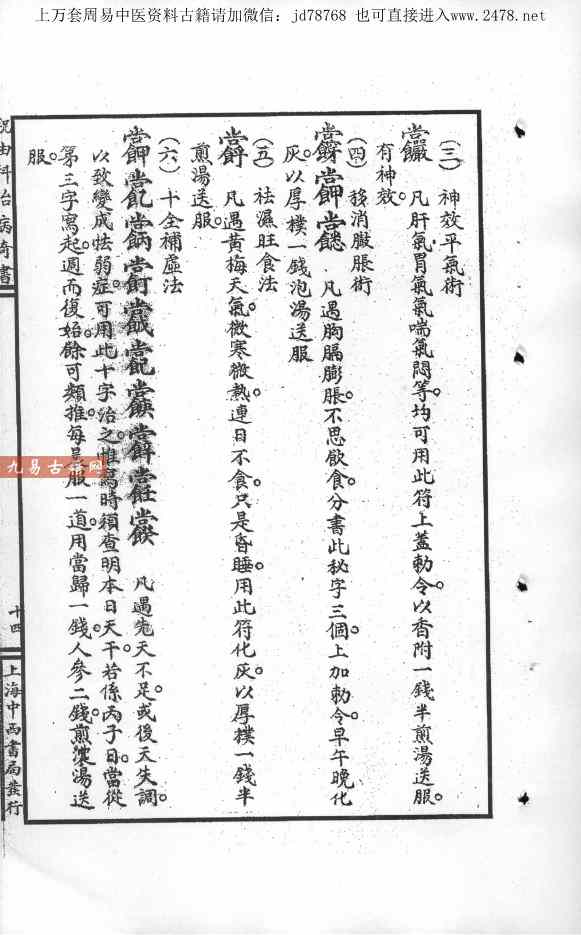 上万套周易中医资料古籍请加微信：jd78768 也可直接进入www.2478.net
(三) 神效平氣術
凡肝氣胃氣氣喘氣悶等。均可用此符上蓋勅令。以香附一錢半煎湯送服。
有神效。
(四) 移消臟脹術
凡遇胸膈膨脹。不思飲食。分書此秘字三個。上加勅令。早午晚化
灰。以厚樸一錢泡湯送服
(五) 祛濕旺食法
凡遇黃梅天氣。微寒微熱。連日不食。只是昏睡。用此符化灰。以厚樸一錢半
煎湯送服。
(六) 十全補虛法
凡遇先天不足。或後天失調。
以致變成怯弱症。可用此十字治之。惟寫時須查明本日天干。若係丙子日。當從
第三字寫起。週而復始。餘可類推。每服一道。用當歸一錢。人參二錢。煎濃湯送
服。
祝由科治病奇書
十四
上海中西書局發行
九易古籍网